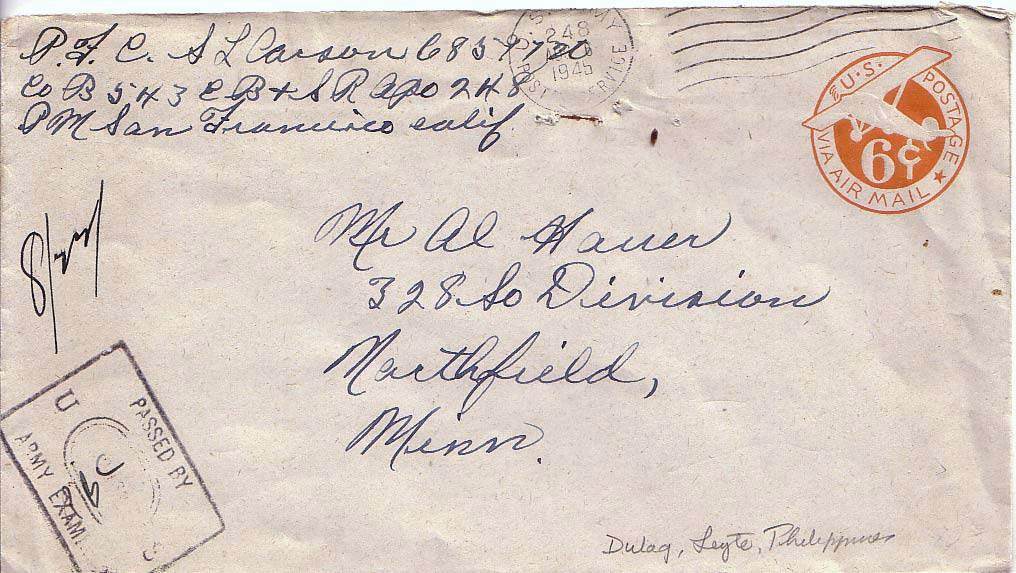 P.F.C. S L Carson
Co B 543 E B + S R APO 248
PM San Francisco calif
U.S. ARMY
248
1945
POSTAL SERVICE
U.S. POSTAGE
6¢
VIA AIR MAIL
Mr Al Hauer
328 So Division
Northfield,
Minn.
PASSED BY
U
ARMY EXAM
Dulag, Leyte, Philippines